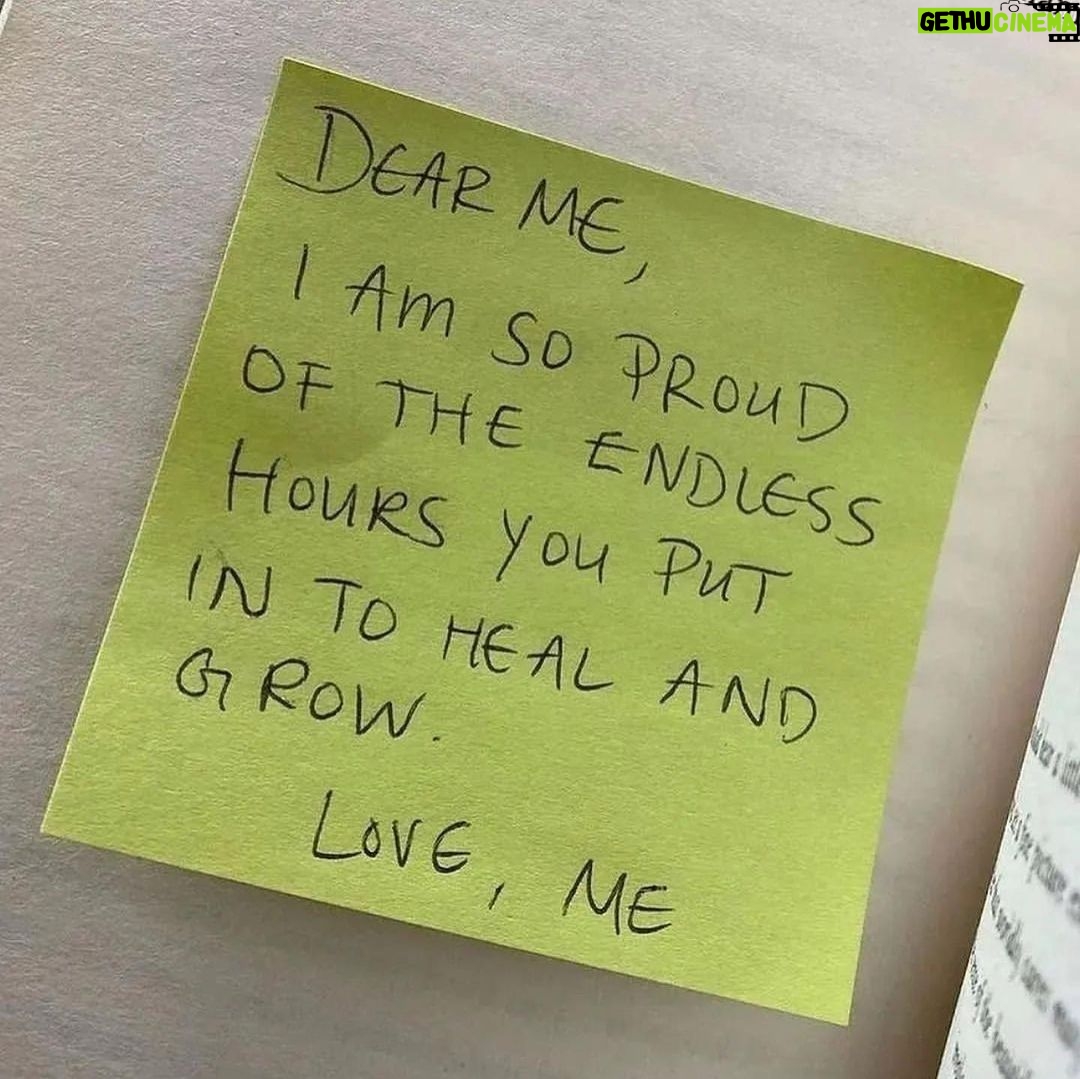 GETHUCINEMA
DEAR ME,
I AM SO PROUD
OF THE ENDLESS
HOURS YOU PUT
IN TO HEAL AND
GROW.
LOVE, ME